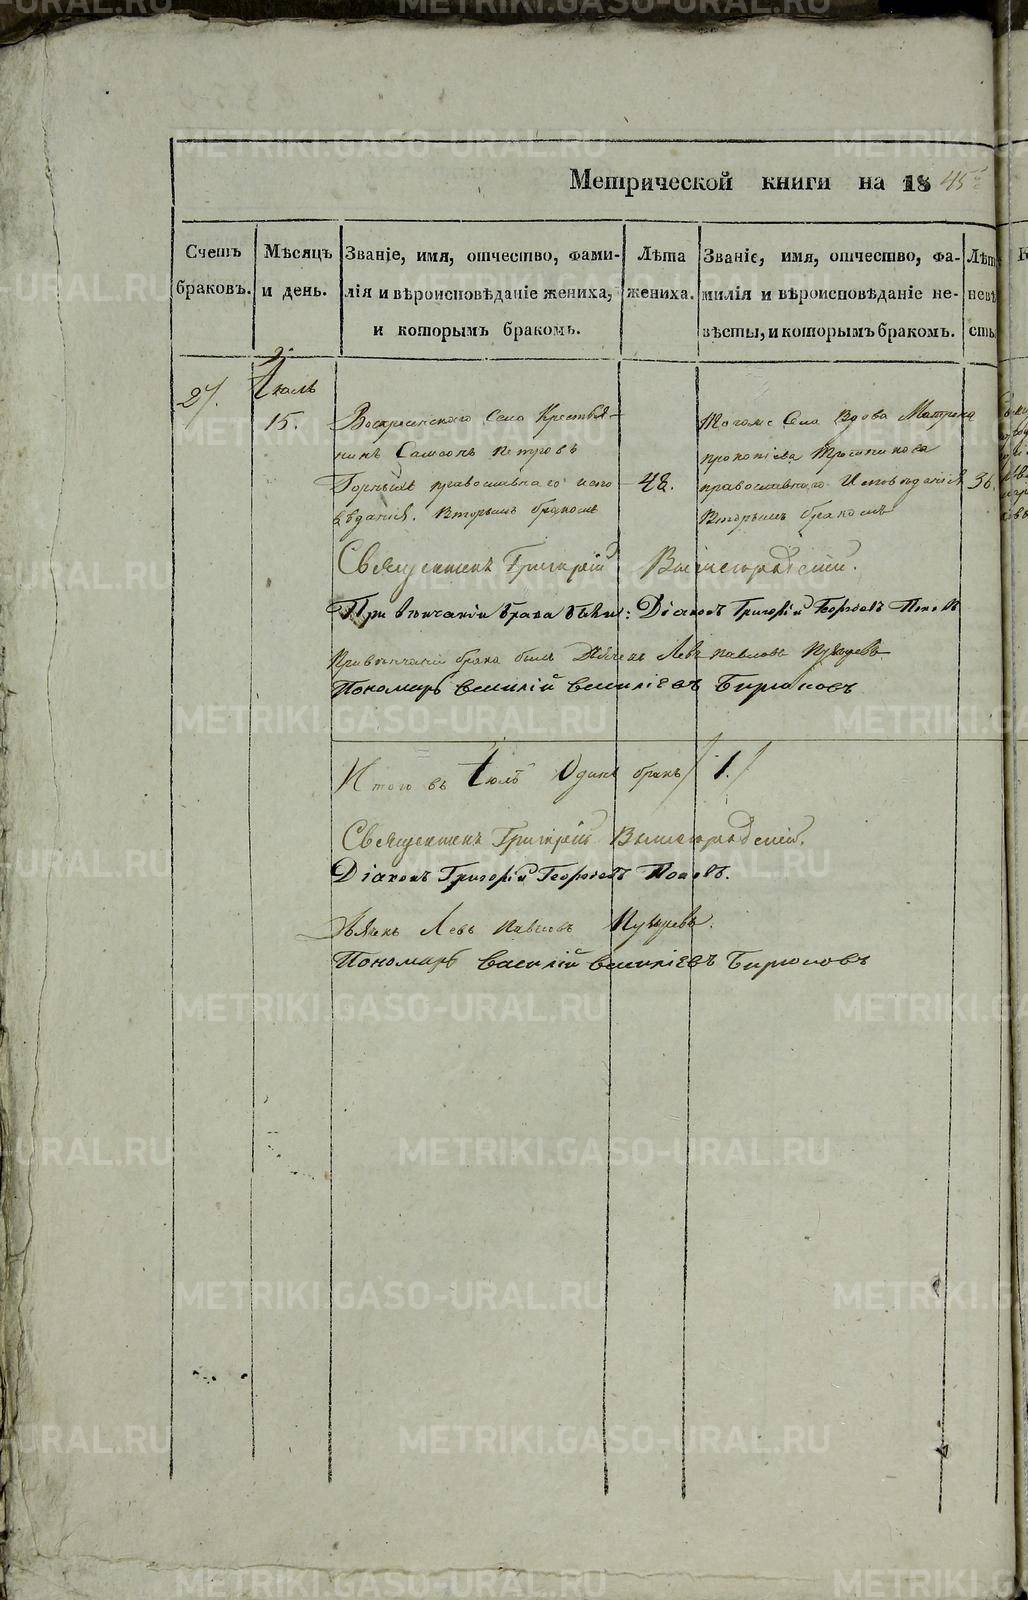 Метрической книги на 1845
Счетъ браковъ.
Мѣсяцъ и день.
Званіе, имя, отчество, фами-
лія и вѣроисповѣданіе жениха,
и которымъ бракомъ.
Лѣта жениха.
Званіе, имя, отчество, фа-
милія и вѣроисповѣданіе не-
вѣсты, и которымъ бракомъ.
Лѣт
невѣ
сты
27.
Іюль
15.
Воскресенскаго Села Крестья-
нинъ Самсонъ Петровъ
православнаго испо
вѣданія. Вторымъ бракомъ
48.
Тогоже Села Вдова Матрона
прокопіева
православнаго Исповѣданія
Вторымъ бракомъ
36.
Священникъ Григорій Вышегородскій.
При вѣнчаніи брака былъ: Діаконъ Григорій Георгіевъ Поповъ
При вѣнчаніи брака былъ Дьячекъ Левъ павловъ
Пономарь Василій Василіевъ Бирюковъ
Итого въ Іюлѣ Одинъ бракъ /1./
Священникъ Григорій Вышегородскій.
Діаконъ Григорій Георгіевъ Поповъ.
Дьячекъ Левъ Павловъ
Пономарь Василій Василіевъ Бирюковъ
METRIKI.GASO-URAL.RU